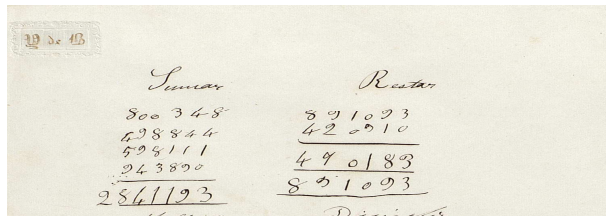 Sumar
800348
498844
598111
943890
2841193
Restar
891093
420910
470183
891093